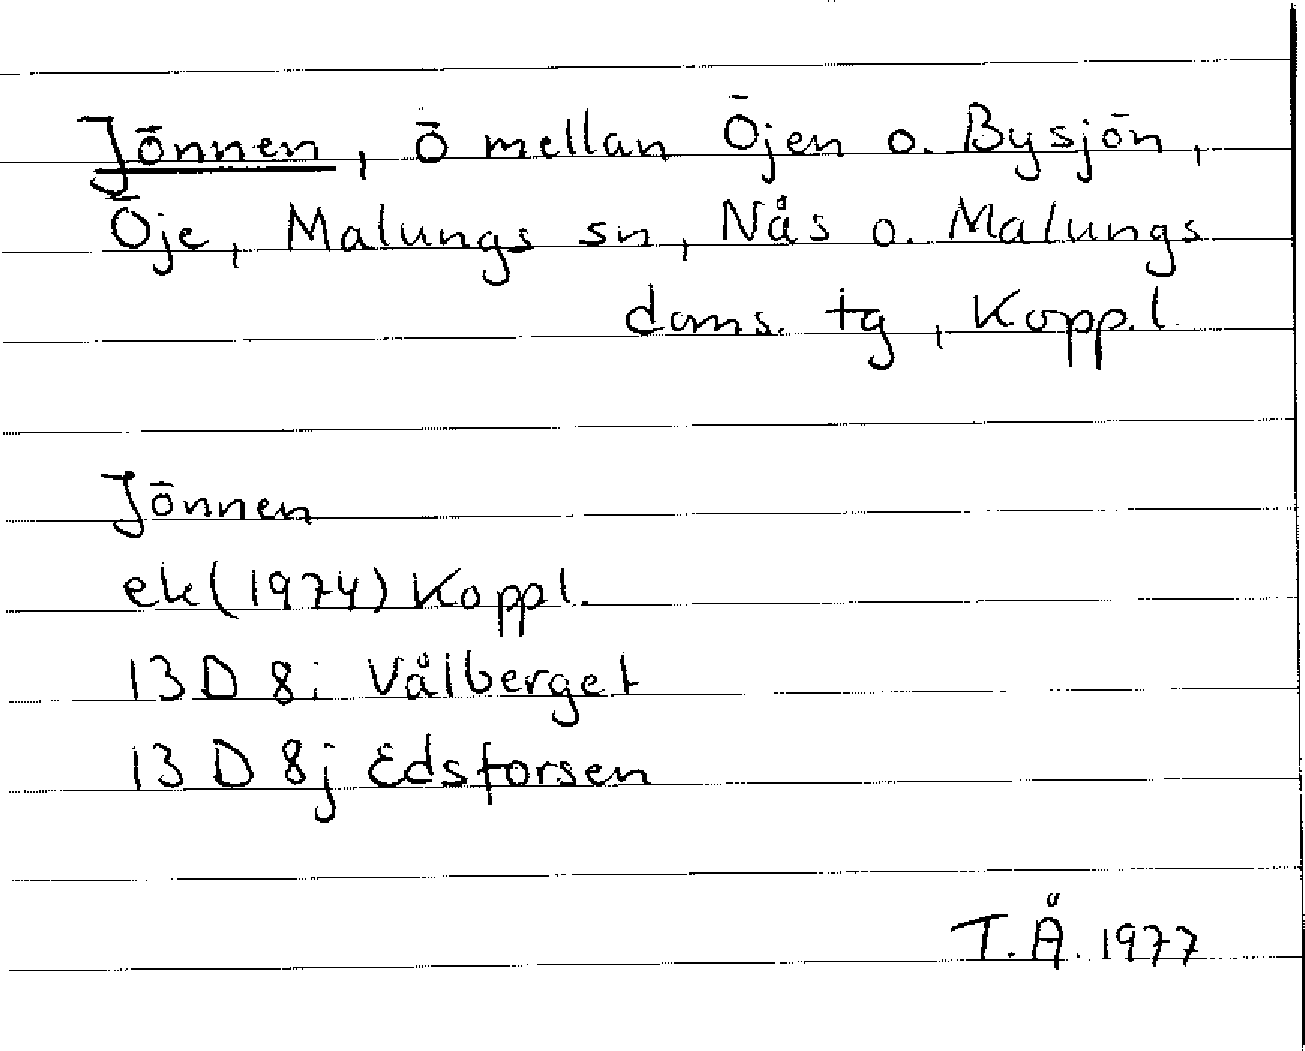 Jönnen, ö mellan Öjen o. Bysjön,
Öje, Malungs sn, Nås o. Malungs
doms. tg, Kopp.l
Jönnen
ek (1974) Koppl.
13 D 8i Vålberget
13 D 8j Edsforsen
T. Å. 1977